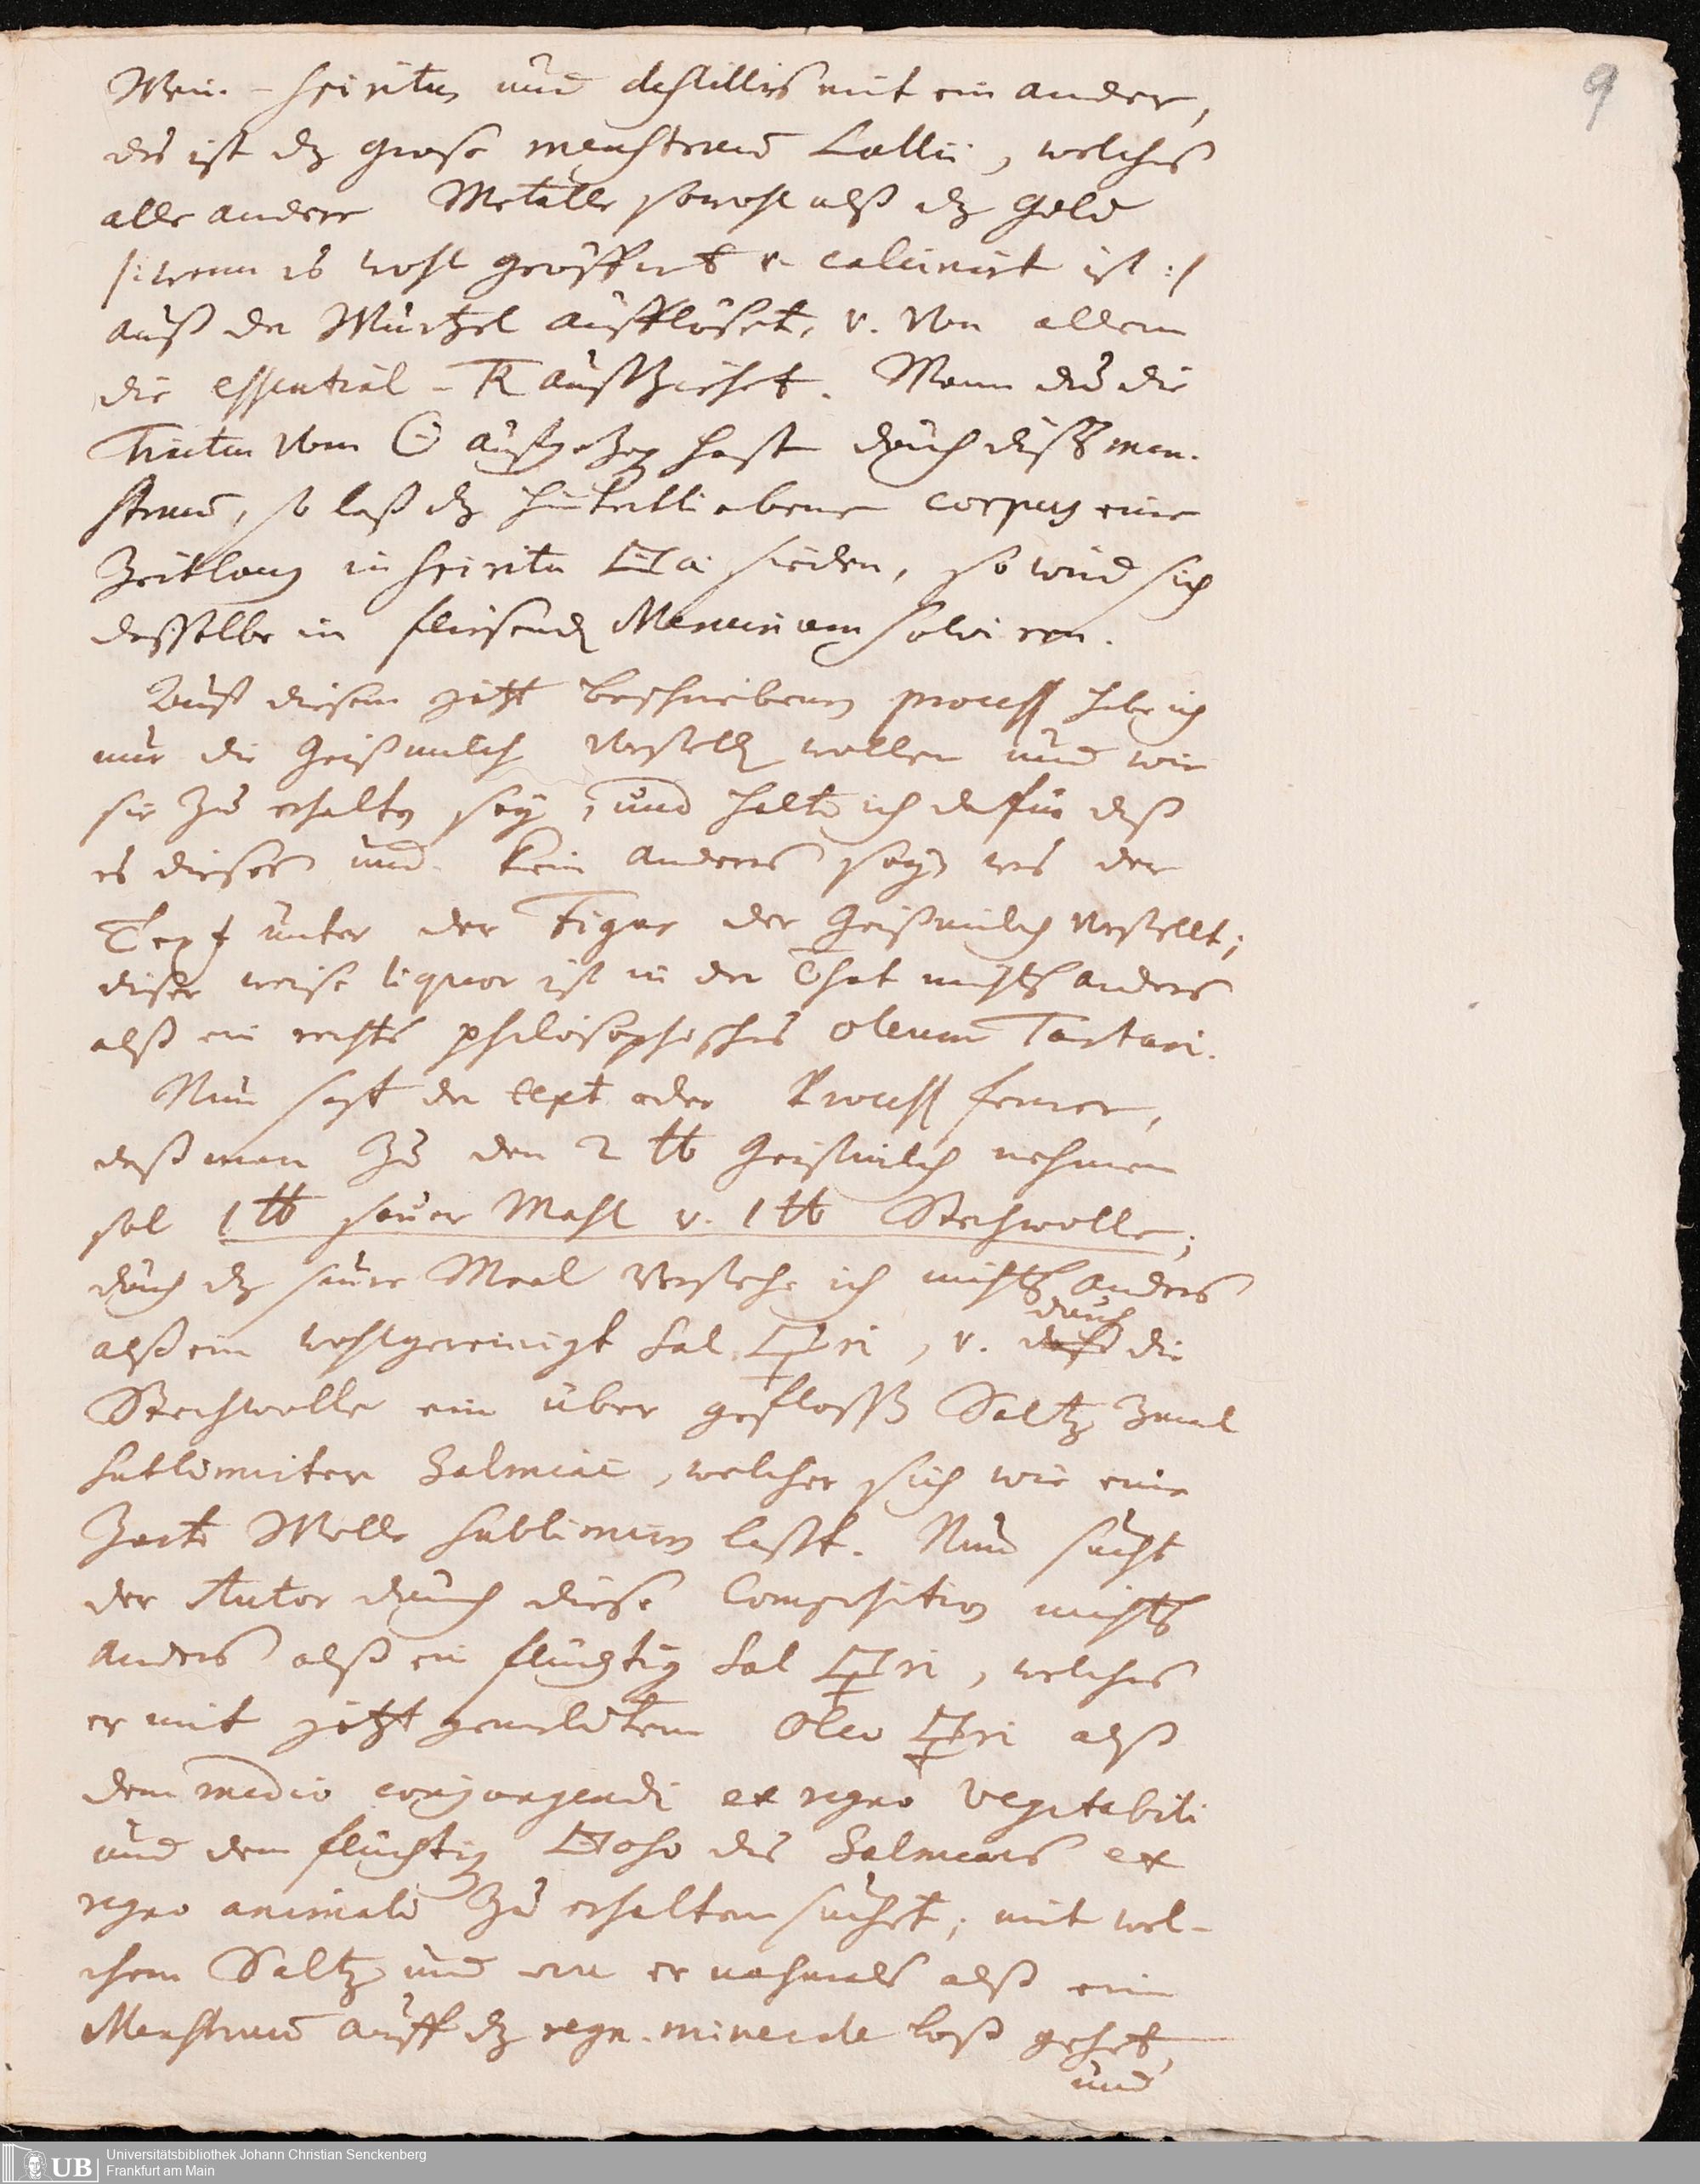 9
Wein-Spiritus und destillirs mit ein ander,
dis ist dz grose menstruum Lullii, welches
alle andere Metalle sowohl alß dz Gold
/: wenn es wohl geöffnet v. calcinirt ist :/
auß der Wurtzel aufflöset, v. von allem
die essential-TR außziehet. Wann du die
Tinctur vom ☉ außgezog hast durch diß men-
struum, so laß dz hinterbliebene corpus eine
Zeitlang in Spiritu sieden, so wird sich
dasselbe in fliesend Mercurium solviren.
Auß diesem jetzt beschriebenen process hab ich
nur die Geißmilch vorstell wollen und wie
sie zu erhalten sey, und halte ich dafür daß
es dieses und kein anders sey was der
Text unter der Figur der Geißmilch vorstellt;
diser weise liquor ist in der That nichts anders
alß ein rechts philosophisches oleum Tartari.
Nun sagt der text oder Process ferner,
daß man zu den 2 ℔ Geißmilch nehmen
sol 1 ℔ sauer Mehl v. 1 ℔ Stechwolle;
durch dz saure Meel verstehe ich nichts anders
durch
alß ein wohlgereinigt Sal ri, v. die
Stechwolle ein über gefloss Saltz 3mal
sublimirter Salmiac, welcher sich wie eine
Zarte Wolle sublimiren lasst. Nun sucht
der Autor durch diese Composition nichts
anders alß ein flüchtig Sal ri, welches
er mit jetzt gemeldtem Oleo ri alß
dem medio conjungendi ex regno vegetabili
und dem flüchtig des Salmiacs ex
regno animali zu erhalten suchet; mit wel-
chem Saltz und er nachmals alß ein
Menstruum auff dz regn. minerale loß gehet,
und
UB
Universitätsbibliothek Johann Christian Senckenberg
Frankfurt am Main